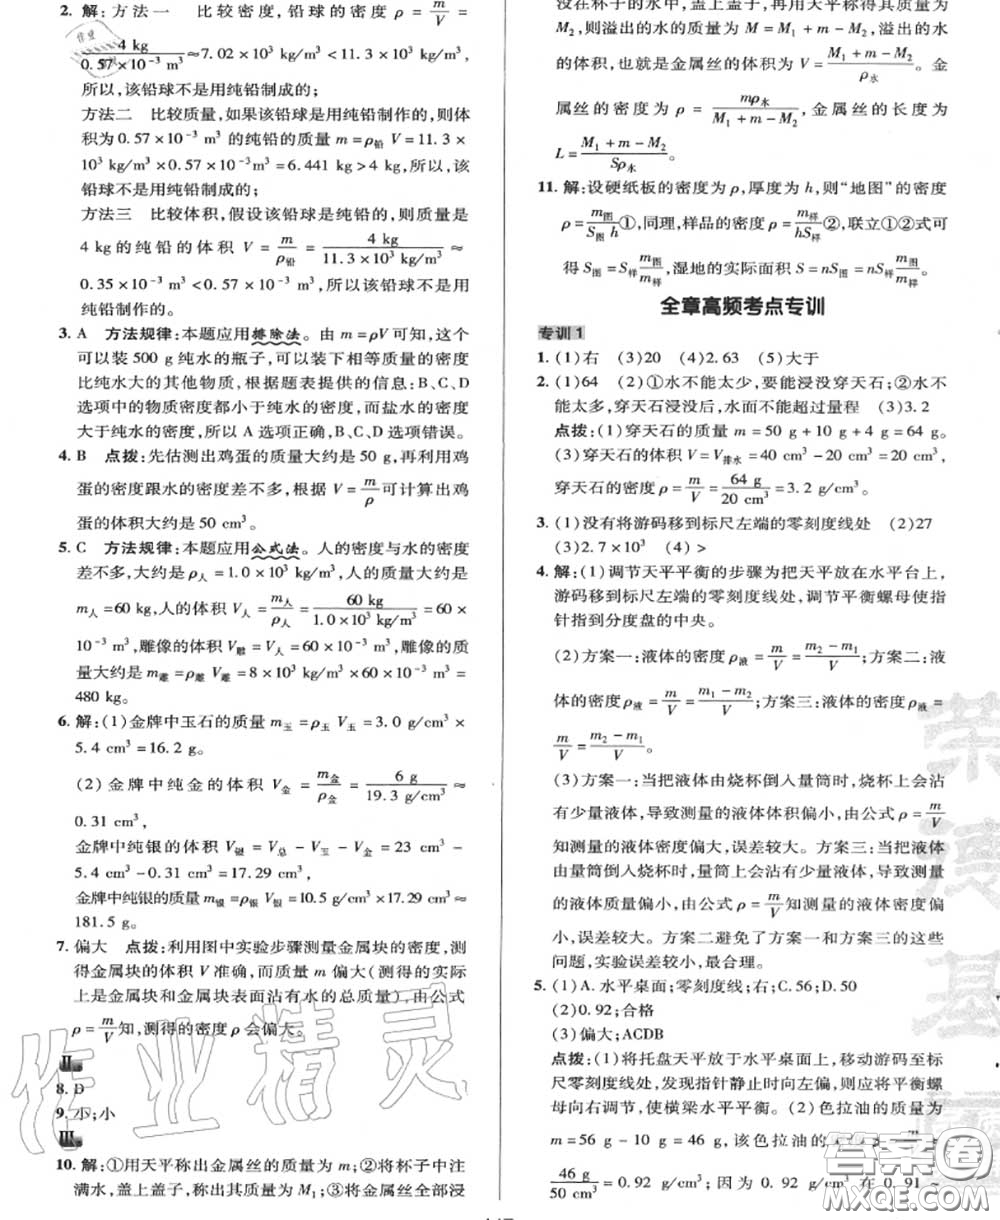 2. 解:方法一 比较密度,铅球的密度 ρ = m/V =
4 kg/(0.57×10⁻³ m³) ≈7.02×10³ kg/m³<11.3×10³ kg/m³,
所以,该铅球不是用纯铅制成的;
方法二 比较质量,如果该铅球是用纯铅制作的,则体
积为 0.57×10⁻³ m³ 的纯铅的质量 m=ρ铅 V=11.3×
10³ kg/m³×0.57×10⁻³ m³=6.441 kg>4 kg,所以,该
铅球不是用纯铅制成的;
方法三 比较体积,假设该铅球是纯铅的,则质量是
4 kg 的纯铅的体积 V = m/ρ铅 = 4 kg/(11.3×10³ kg/m³) ≈
0.35×10⁻³ m³<0.57×10⁻³ m³,所以,该铅球不是用
纯铅制作的。
3. A 方法规律:本题应用排除法。由 m=ρV 可知,这个
可以装 500 g 纯水的瓶子,要装下相等质量的密度
比纯水大的其他物质,根据题表提供的信息:B、C、D
选项中的物质密度都小于纯水的密度,而盐水的密度
大于纯水的密度,所以 A 选项正确,B、C、D 选项错误。
4. B 点拨:先估测出鸡蛋的质量大约是 50 g,再利用鸡
蛋的密度跟水的密度差不多,根据 V=m/ρ可计算出鸡
蛋的体积大约是 50 cm³。
5. C 方法规律:本题应用公式法。人的密度与水的密度
差不多,大约是 ρ人=1.0×10³ kg/m³,人的质量大约是
m人=60 kg,人的体积 V人=m人/ρ人=60 kg/(1.0×10³ kg/m³)=60×
10⁻³ m³,雕像的体积 V雕=V人=60×10⁻³ m³,雕像的质
量大约是 m雕=ρ雕 V雕=8×10³ kg/m³×60×10⁻³ m³=
480 kg。
6. 解:(1)金牌中玉石的质量 m玉=ρ玉 V玉=3.0 g/cm³×
5.4 cm³=16.2 g。
(2)金牌中纯金的体积 V金=m金/ρ金=6 g/(19.3 g/cm³)≈
0.31 cm³,
金牌中纯银的体积 V银=V总-V玉-V金=23 cm³-
5.4 cm³-0.31 cm³=17.29 cm³,
金牌中纯银的质量 m银=ρ银 V银=10.5 g/cm³×17.29 cm³≈
181.5 g。
7. 偏大 点拨:利用图中实验步骤测量金属块的密度,测
得金属块的体积 V 准确,而质量 m 偏大(测得的实际
上是金属块和金属块表面沾有水的总质量),由公式
ρ=m/V知,测得的密度 ρ 会偏大。
Ⅱ
8. D
9. 小;小
Ⅲ
10. 解:①用天平称出金属丝的质量为 m;②将杯子中注
满水,盖上盖子,称出其质量为 M₁;③将金属丝全部浸
没在杯子的水中,盖上盖子,再用天平称得质量为
M₂,溢出的水的质量为 M=M₁+m-M₂,溢出的水
的体积,也就是金属丝的体积为 V=(M₁+m-M₂)/ρ水。金
属丝的密度为 ρ = mρ水/(M₁+m-M₂),金属丝的长度为
L=(M₁+m-M₂)/(Sρ水)。
11. 解:设硬纸板的密度为 ρ,厚度为 h,则“地图”的密度
ρ=m图/(S图 h)①,同理,样品的密度 ρ=m样/(hS样)②,联立①②式可
得 S图=S样 m图/m样,湿地的实际面积 S=nS图=nS样 m图/m样。
全章高频考点专训
专训 1
1. (1)右 (3)20 (4)2.63 (5)大于
2. (1)64 (2)①水不能太少,要能浸没穿天石;②水不
能太多,穿天石浸没后,水面不能超过量程 (3)3.2
点拨:(1)穿天石的质量 m=50 g+10 g+4 g=64 g。
(3)穿天石的体积 V=V排水=40 cm³-20 cm³=20 cm³,
穿天石的密度 ρ=m/V=64 g/20 cm³=3.2 g/cm³。
3. (1)没有将游码移到标尺左端的零刻度线处 (2)27
(3)2.7×10³ (4)>
4. 解:(1)调节天平平衡的步骤为把天平放在水平台上,
游码移到标尺左端的零刻度线处,调节平衡螺母使指
针指到分度盘的中央。
(2)方案一:液体的密度 ρ液=m/V=(m₂-m₁)/V;方案二:液
体的密度 ρ液=m/V=(m₁-m₂)/V;方案三:液体的密度 ρ液=
m/V=(m₂-m₁)/V。
(3)方案一:当把液体由烧杯倒入量筒时,烧杯上会沾
有少量液体,导致测量的液体体积偏小,由公式 ρ=m/V
知测量的液体密度偏大,误差较大。方案三:当把液体
由量筒倒入烧杯时,量筒上会沾有少量液体,导致测量
的液体质量偏小,由公式 ρ=m/V知测量的液体密度偏
小,误差较大。方案二避免了方案一和方案三的这些
问题,实验误差较小,最合理。
5. (1)A.水平桌面;零刻度线;右;C.56;D.50
(2)0.92;合格
(3)偏大;ACDB
点拨:(1)将托盘天平放于水平桌面上,移动游码至标
尺零刻度线处,发现指针静止时向左偏,则应将平衡螺
母向右调节,使横梁水平平衡。(2)色拉油的质量为
m=56 g-10 g=46 g,该色拉油的密度为 ρ=m/V=
46 g/50 cm³=0.92 g/cm³,因为 0.92 g/cm³ 在 0.91~
作业精灵
荣德基
答案圈